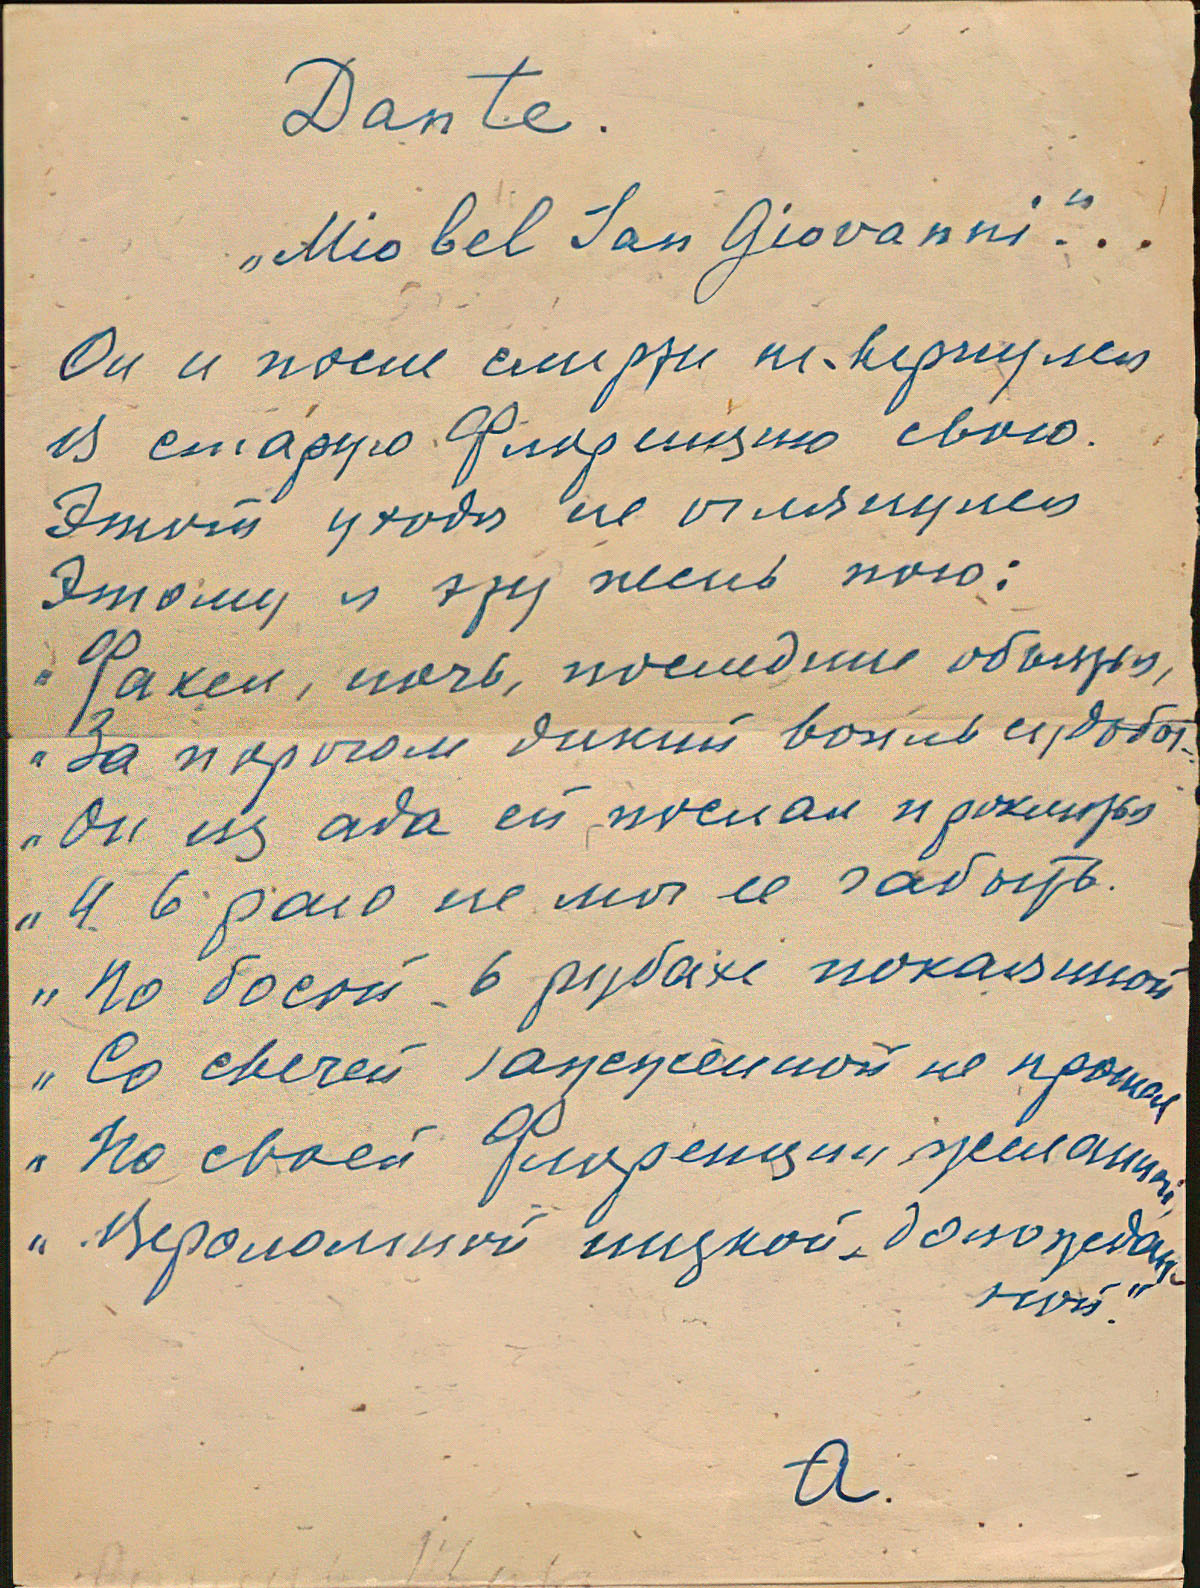 Dante.
„Mio bel San Giovanni“...
Он и после смерти не вернулся
В старую Флоренцию свою.
Этот уходя не оглянулся
Этому я эту песнь пою:
„Факел, ночь, последние объятья,
„За порогом дикий вопль судьбы..
„Он из ада ей послал проклятья
„И в раю не мог ее забыть.
„Но босой – в рубахе покаянной
„Со свечей зажженной не прошел
„По своей Флоренции желанной,
„Вероломной низкой, долгождан-
ной.“
А.